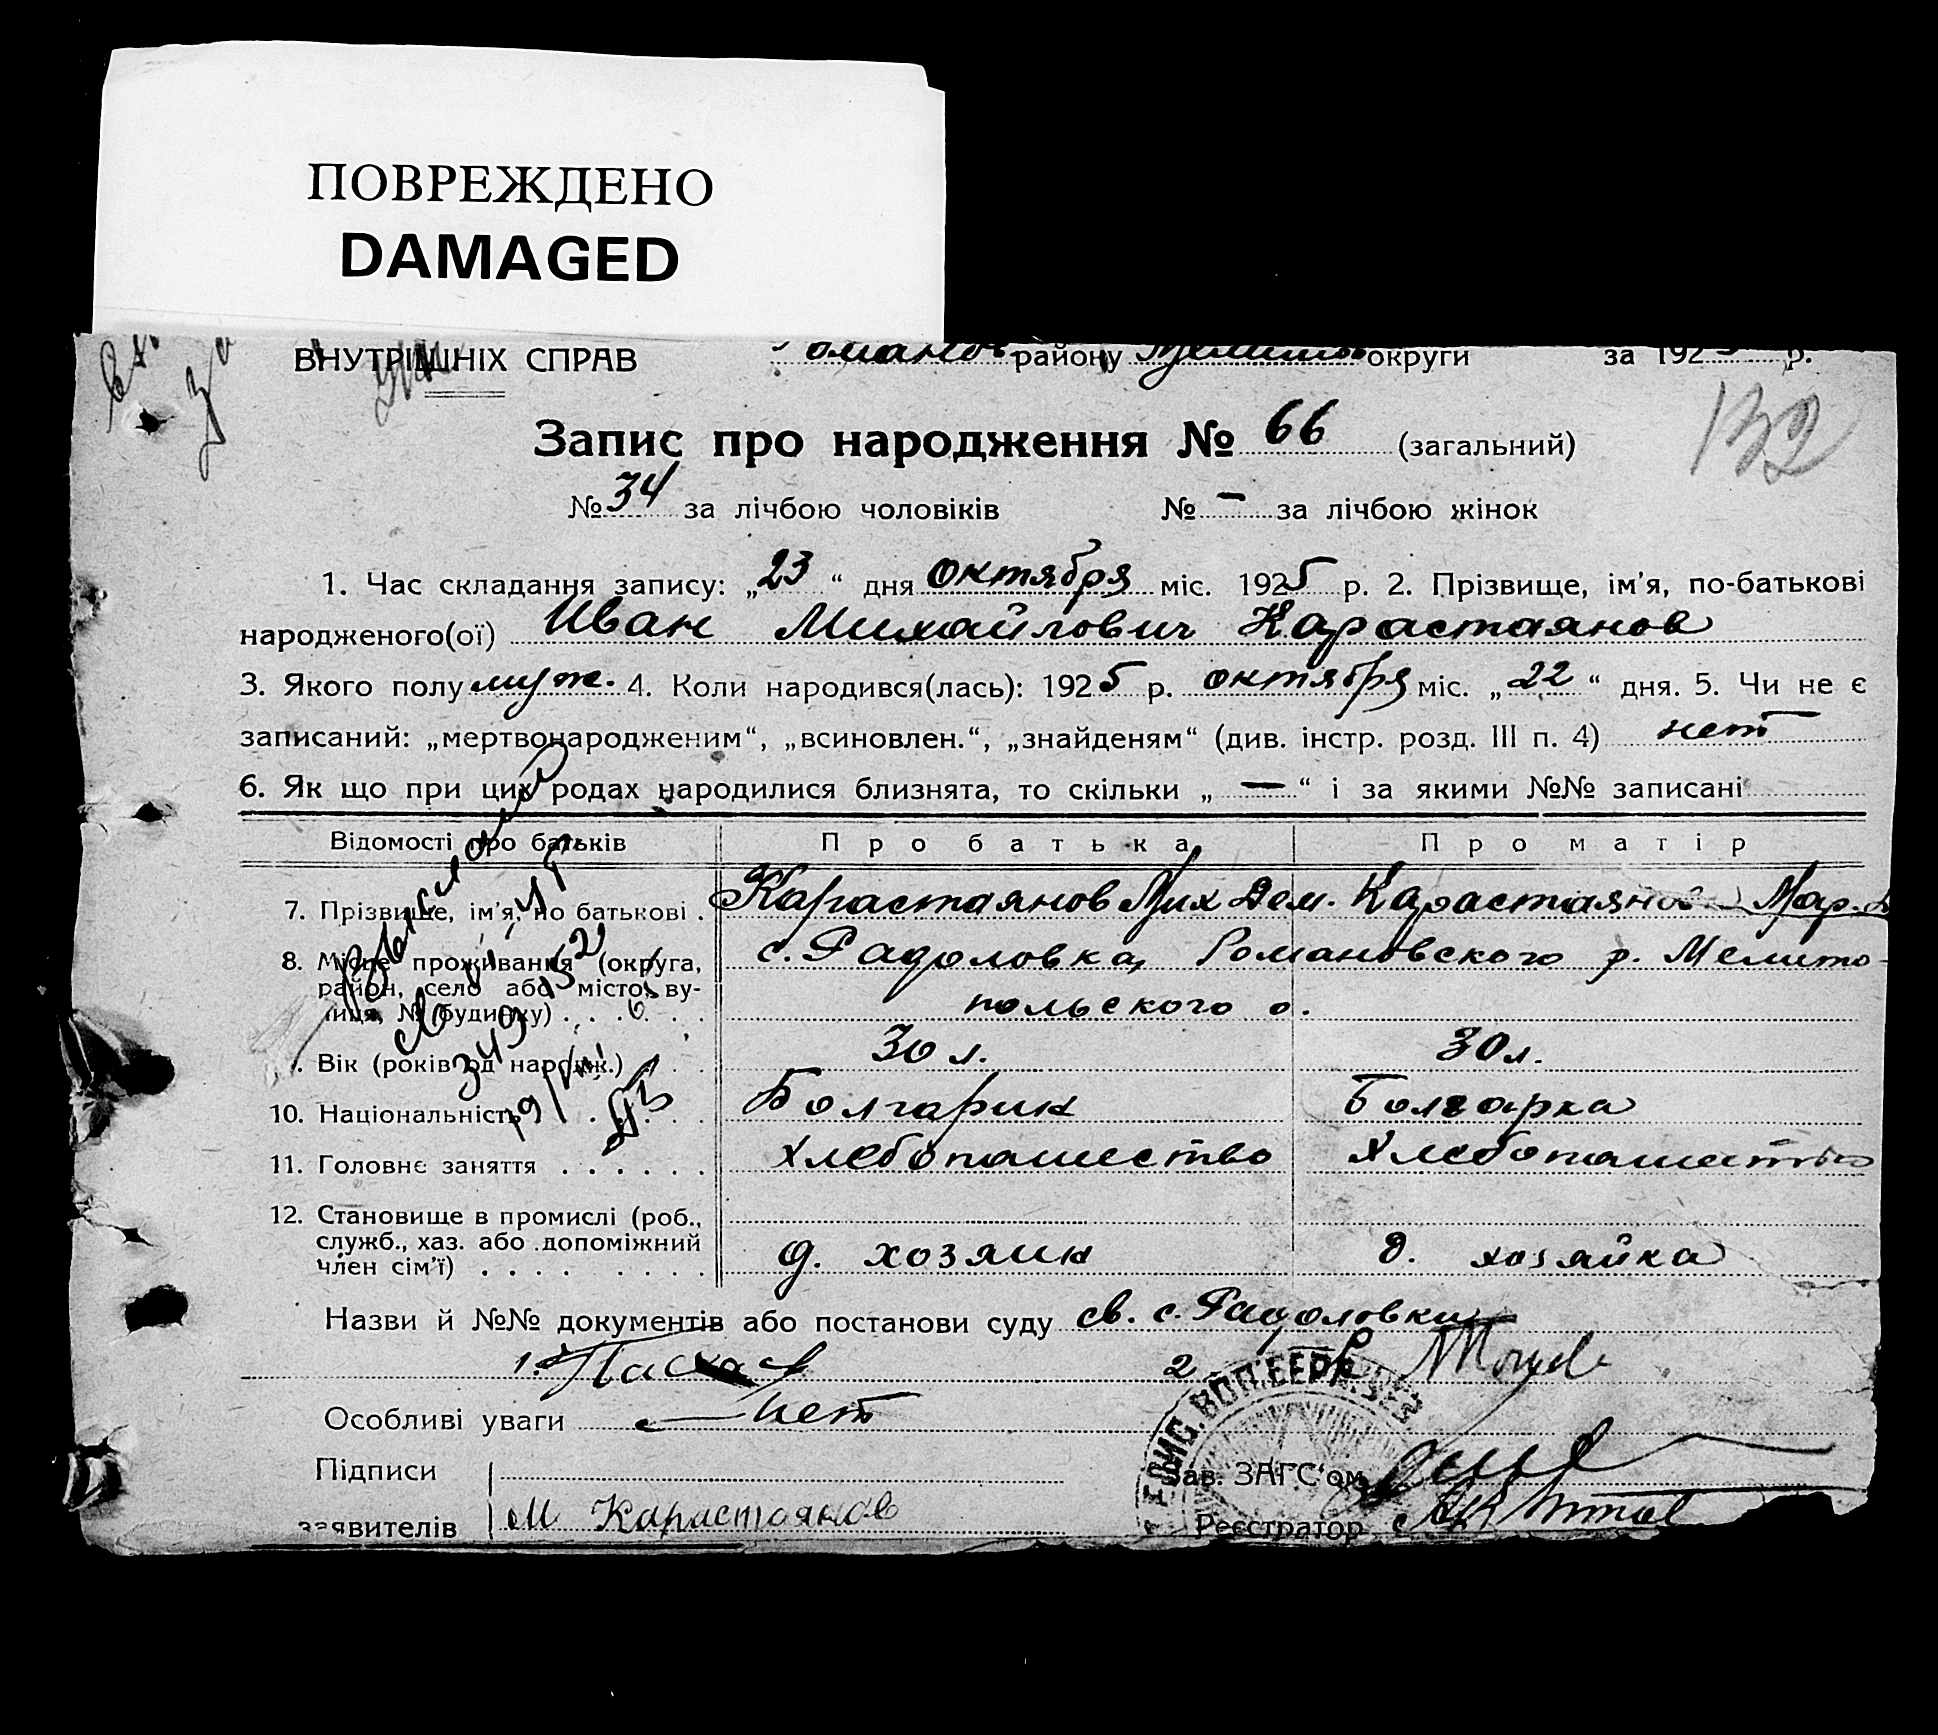 ПОВРЕЖДЕНО
DAMAGED
ВНУТРІШНІХ СПРАВ Романов району округи за 1925 р.
132
Запис про народження № 66 (загальний)
№ 34 за лічбою чоловіків № – за лічбою жінок
1. Час складання запису: „23“ дня октября міс. 1925 р. 2. Прізвище, ім'я, по-батькові
народженого(ої) Иван Михайлович Карастоянов
3. Якого полу муж. 4. Коли народився(лась): 1925 р. октября міс. „22“ дня. 5. Чи не є
записаний: „мертвонародженим“, „всиновлен.“, „знайденям“ (див. інстр. розд. III п. 4) нет
6. Як що при цих родах народилися близнята, то скільки „ — “ і за якими №№ записані
Відомості про батьків Про батька Про матір
7. Прізвище, ім'я, по батькові . Карастоянов Мих Дем. Карастоянов Мар.
8. Місце проживання (округа, с. Радоловка, Романовского р. Мелито-
район, село або місто, ву-
лиця, № будинку) . . . . . польского о.
9. Вік (років од народж.) . . . 30 л. 30 л.
10. Національність . . . . . Болгарин Болгарка
11. Головнє заняття . . . . . . Хлебопашество Хлебопашество
12. Становище в промислі (роб.,
служб., хаз. або допоміжний д. хозяин д. хозяйка
член сім'ї) . . . . . . . .
Назви й №№ документів або постанови суду св. с. Радоловки
1. 2
Особливі уваги нет
Підписи Зав. ЗАГС'ом
заявителів М Карастоянов Реєстратор